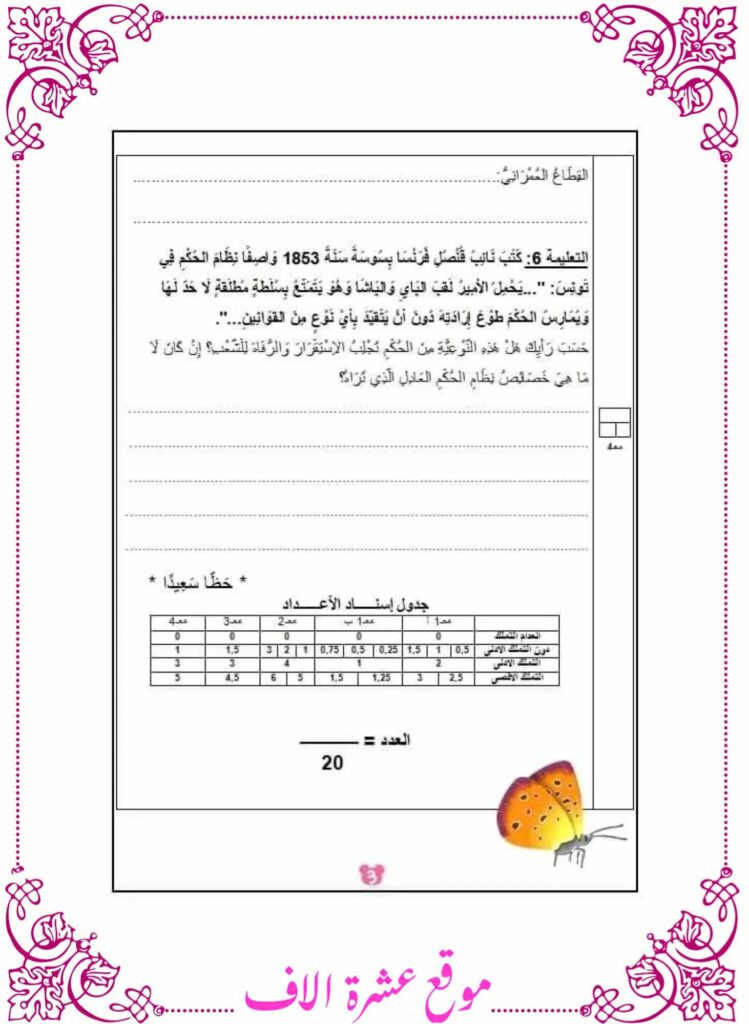 القِطَاعُ العُمْرَانِيُّ:..............................
..............................
التعليمة 6: كَتَبَ نَائِبُ قُنْصُلِ فَرَنْسَا بِسُوسَةَ سَنَةَ 1853 وَاصِفًا نِظَامَ الحُكْمِ فِي
تُونِسَ: "...يَحْمِلُ الأَمِيرُ لَقَبَ البَايِ وَالبَاشَا وَهُوَ يَتَمَتَّعُ بِسُلْطَةٍ مُطْلَقَةٍ لَا حَدَّ لَهَا
وَيُمَارِسُ الحُكْمَ طَوْعَ إِرَادَتِهِ دُونَ أَنْ يَتَقَيَّدَ بِأَيِّ نَوْعٍ مِنَ القَوَانِينِ...".
حَسَبَ رَأْيِكَ هَلْ هَذِهِ النَّوْعِيَّةِ مِنَ الحُكْمِ تَجْلِبُ الاِسْتِقْرَارَ وَالرَّفَاهَ لِلشَّعْبِ؟ إِنْ كَانَ لَا
مَا هِيَ خَصَائِصُ نِظَامِ الحُكْمِ العَادِلِ الَّذِي تَرَاهُ؟
..............................
..............................
..............................
..............................
..............................
معـ4
* حَظًّا سَعِيدًا *
جدول إسنـــاد الأعـــداد
معـ1 أ معـ1 ب معـ2 معـ3 معـ4
انعدام التملك 0 0 0 0 0
دون التملك الأدنى 0,5 1 1,5 0,25 0,5 0,75 1 2 3 1,5 1
التملك الأدنى 2 1 4 3 3
التملك الأقصى 2,5 3 1,25 1,5 5 6 4,5 5
العدد = ______
20
3
موقع عشرة الاف